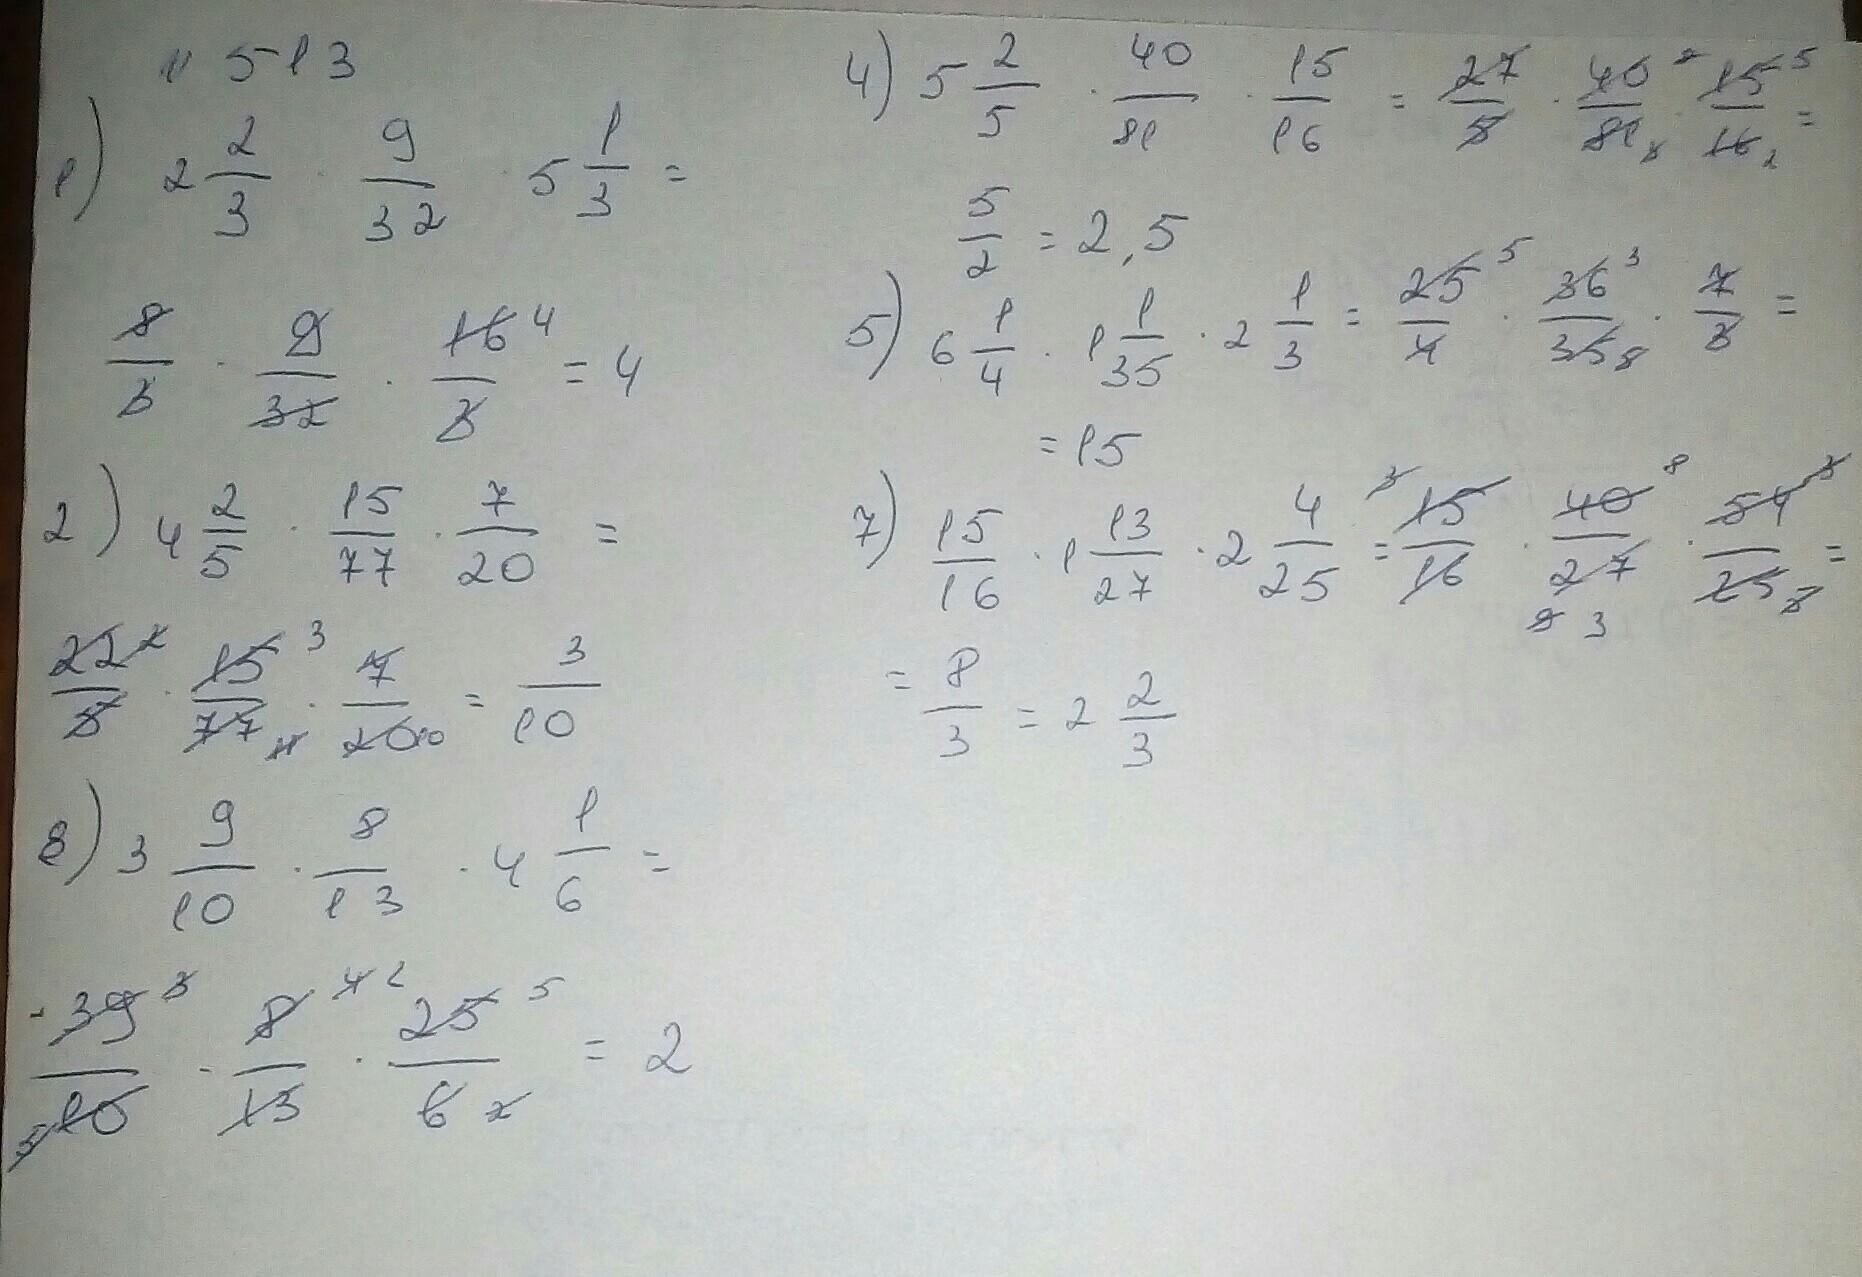 № 513
1) 2 2/3 · 9/32 · 5 1/3 =
8/3 · 9/32 · 16/3 4 = 4
2) 4 2/5 · 15/77 · 7/20 =
22/5 2 · 15/77 3 11 · 7/20 10 = 3/10
8) 3 9/10 · 8/13 · 4 1/6 =
39/10 3 5 · 8/13 4 2 · 25/6 5 2 = 2
4) 5 2/5 · 40/81 · 15/16 = 27/5 · 40/81 · 15/16 5 2 =
5/2 = 2,5
5) 6 1/4 · 1 1/35 · 2 1/3 = 25/4 5 · 36/35 3 · 7/3 =
= 15
7) 15/16 · 1 13/27 · 2 4/25 = 3 15/16 · 40/27 8 3 · 54/25 =
= 8/3 = 2 2/3